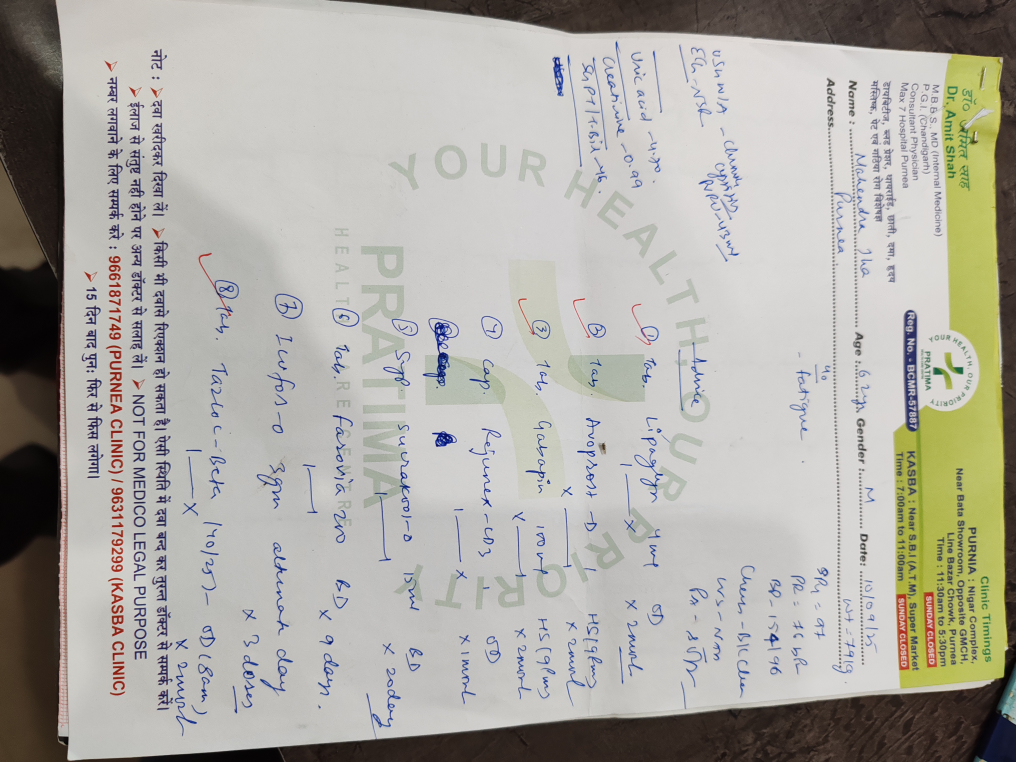 डॉ० अमित साह
Dr. Amit Shah
M.B.B.S., MD (Internal Medicine)
P.G.I. (Chandigarh)
Consultant Physician
Max 7 Hospital Purnea
डायबिटीज, ब्लड प्रेशर, थायराईड, छाती, दमा, हृदय
मस्तिष्क, पेट एवं गठिया रोग विशेषज्ञ
YOUR HEALTH, OUR PRIORITY
PRATIMA
Reg. No. - BCMR-57887
Clinic Timings
PURNIA : Nigar Complex,
Near Bata Showroom, Opposite GMCH,
Line Bazar Chowk, Purnea
Time : 11:30am to 5:30pm
SUNDAY CLOSED
KASBA : Near S.B.I (A.T.M), Super Market
Time : 7:00am to 11:00am
SUNDAY CLOSED
Name : Mahendra Jha Age : 62yr Gender : M Date: 10/09/25
Address Purnea Wt = 79kg
- fatigue
PR = 76
BP - 154/96
Chest - B/L Clear
ECG - NSR
Uric acid - 4.70
Creatinine - 0.99
SGPT/T.Bil - 46
Advice
① Tab. Lipaglyn 4mg OD
1 — x x 2 month
② Tab. D HS (9pm)
x — 1 x 2 month
③ Tab. Gabapin 100mg HS (9pm)
x — 1 x 2 month
④ Cap. Rejunex-CD3 OD
1 — x x 1 month
⑤ Syp. Sucrakool-O 10ml BD
1 — 1 x 20 days
⑥ Tab. 200 BD
1 — 1 x 9 days.
⑦ 3gm alternate day
x 3 doses
⑧ Tab. Tazloc-Beta (40/25) - OD (8am)
1 — x x 2 month
YOUR HEALTH, OUR PRIORITY
PRATIMA
HEALTHCARE
नोट : ➤ दवा खरीदकर दिखा लें। ➤ किसी भी दवासे रिएक्शन हो सकता है, ऐसी स्थिति में दवा बन्द कर तुरन्त डॉक्टर से सम्पर्क करें।
➤ ईलाज से संतुष्ट नही होने पर अन्य डॉक्टर से सलाह लें। ➤ NOT FOR MEDICO LEGAL PURPOSE
➤ नम्बर लगवाने के लिए सम्पर्क करे : 9661871749 (PURNEA CLINIC) / 9631179299 (KASBA CLINIC)
➤ 15 दिन बाद पुनः फिर से फिस लगेगा।